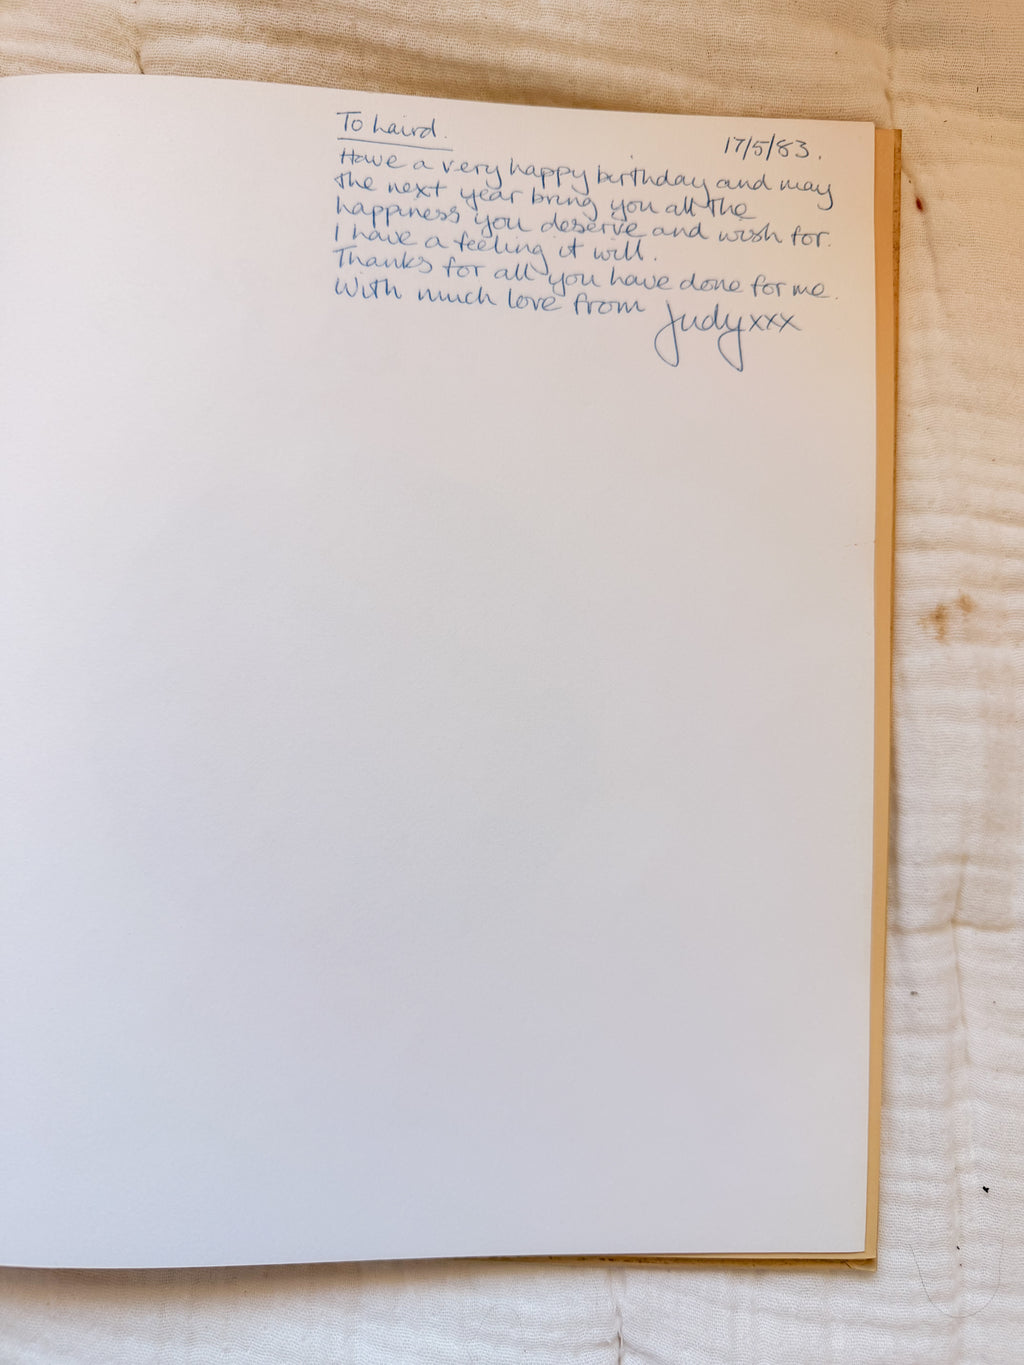 To Laird.
17/5/83.
Have a very happy birthday and may
the next year bring you all the
happiness you deserve and wish for.
I have a feeling it will.
Thanks for all you have done for me.
With much love from Judy xxx